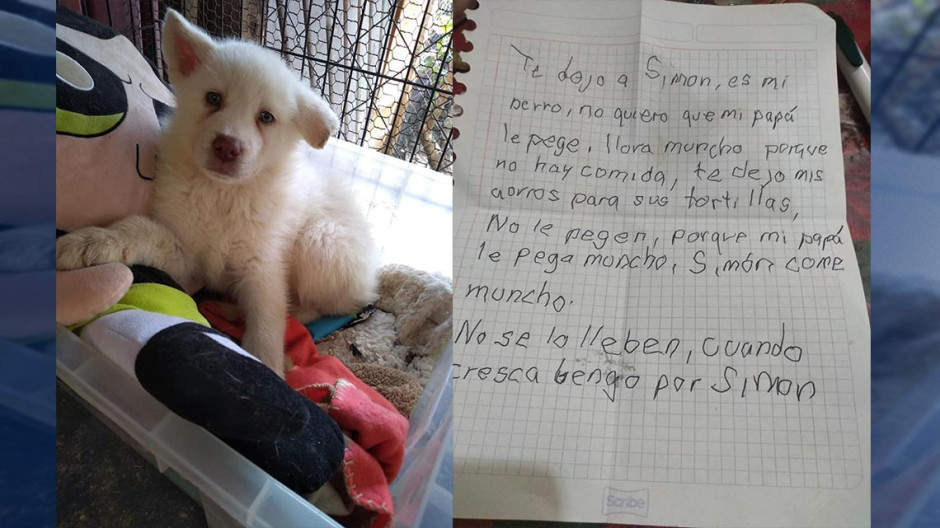 Te dejo a Simon, es mi
perro, no quiero que mi papá
le pege, llora muncho porque
no hay comida, te dejo mis
aorros para sus tortillas,
No le pegen, porque mi papá
le pega muncho, Simón come
muncho.
No se lo lleben, cuando
cresca bengo por Simon
Scribe